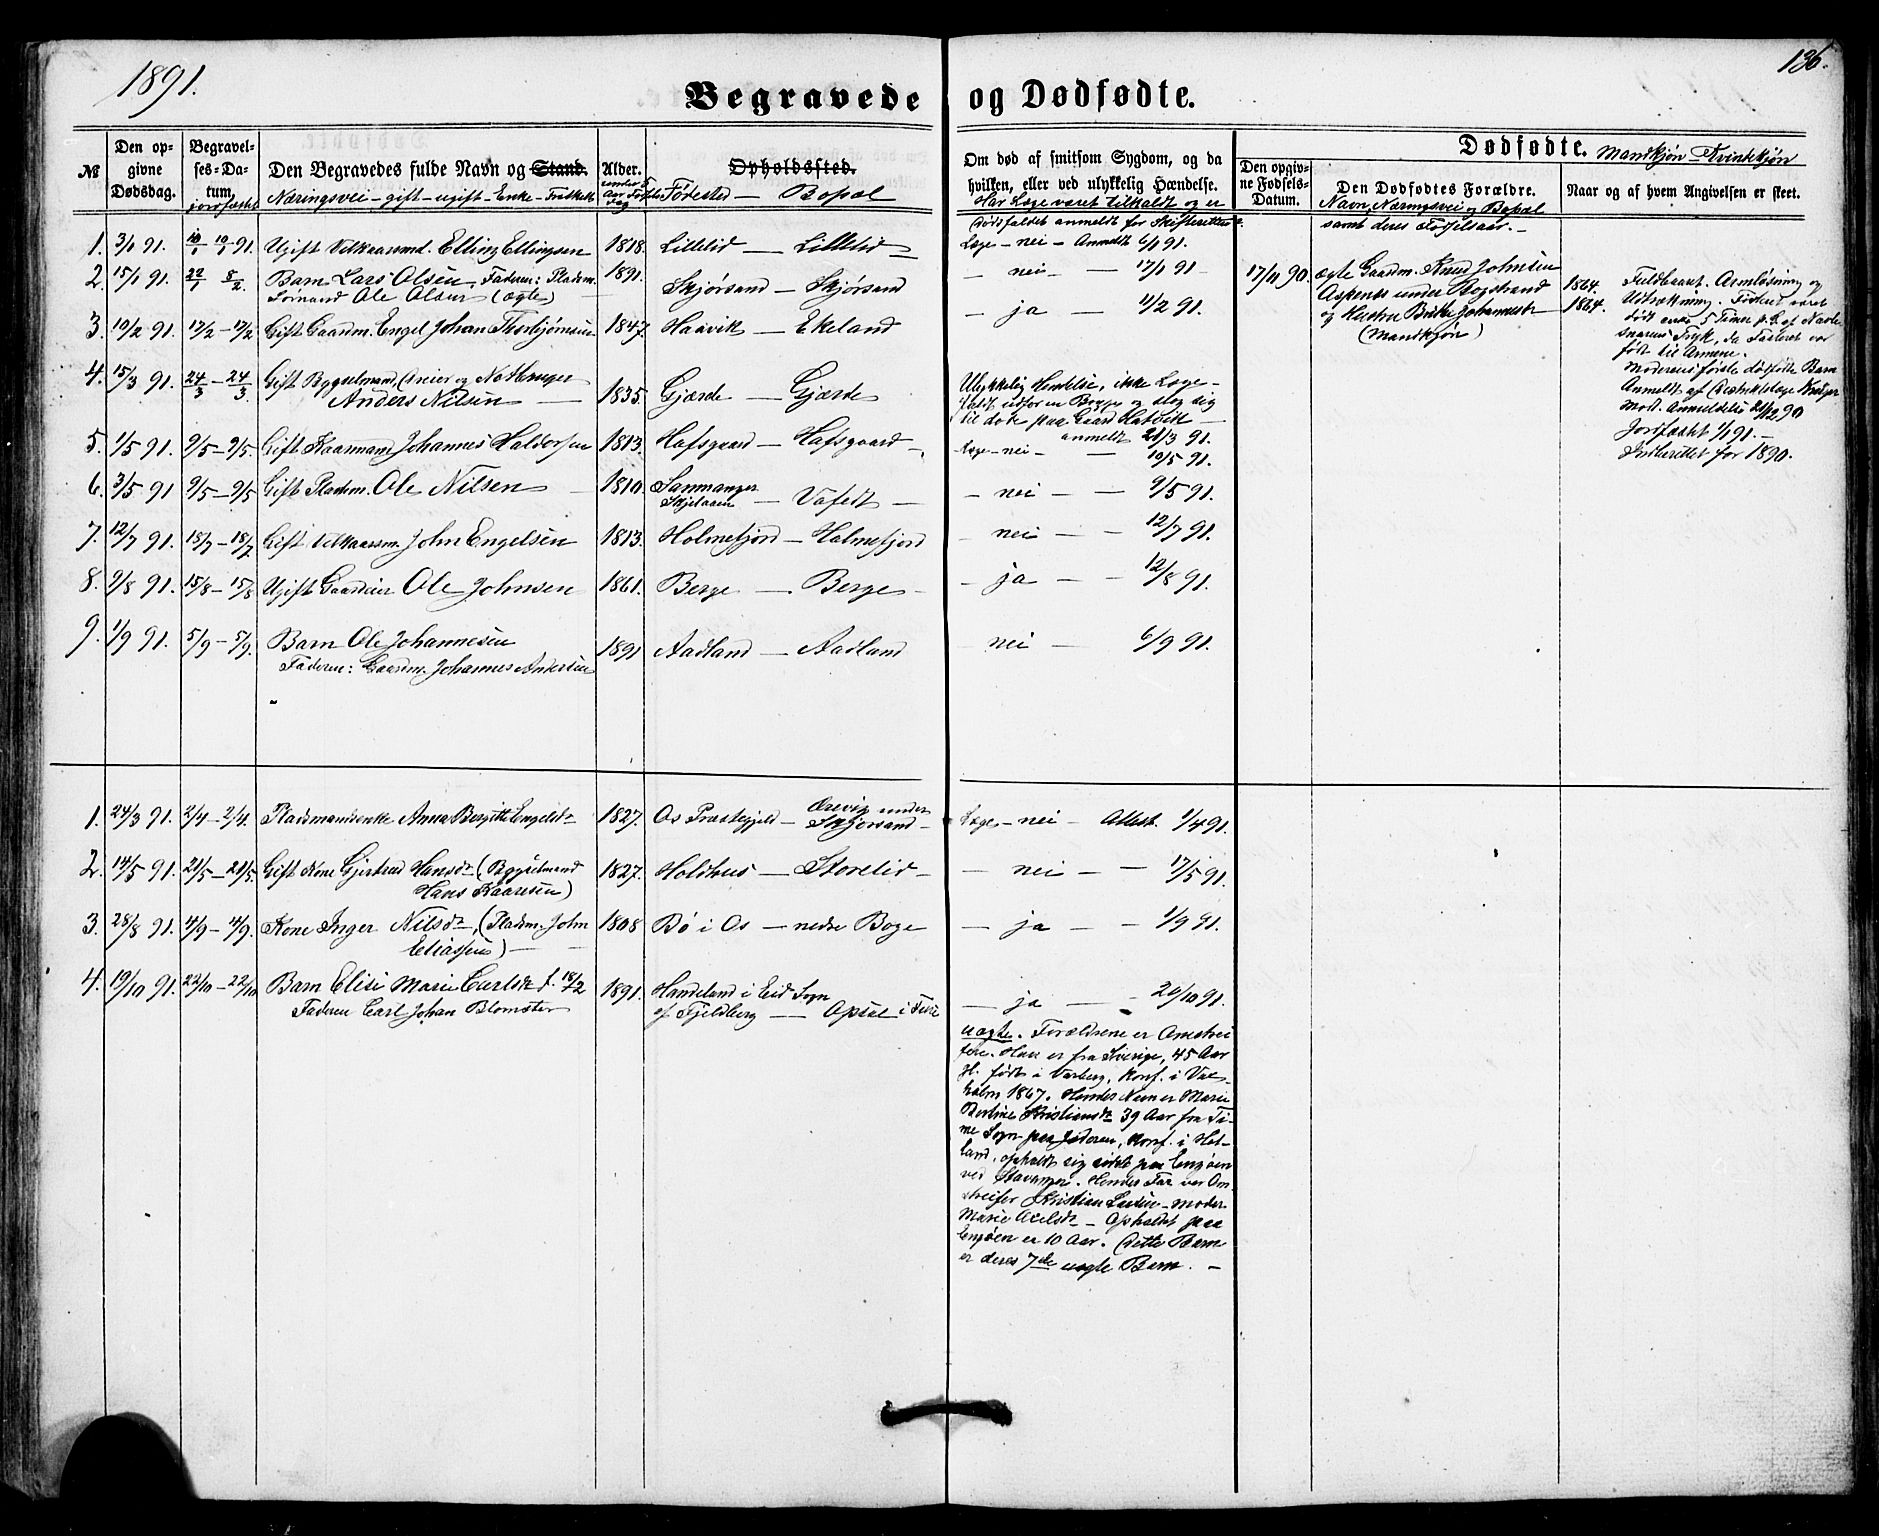 1891.
136.
Begravede og Dødfødte.
№
Den opgivne Dødsdag.
Begravelses-Datum, jordfæstet
Den Begravedes fulde Navn og Stand.
Næringsvei - gift - ugift - Enke - Fraskilt
Alder.
Opholdssted.
Fødested - Bopæl
Om død af smitsom Sygdom, og da hvilken, eller ved ulykkelig Hændelse.
Har Læge været tilkaldt og er Dødsfaldet anmeldt for Skifteretten
Dødfødte. Mandkjøn - Kvindkjøn
Den opgivne Fødsels-Datum.
Den Dødfødtes Forældre.
Navn, Næringsvei og Bopæl samt deres Fødselsaar. -
Naar og af hvem Angivelsen er skeet.
1. 3/1 91. 10/1 - 10/1 91. Ugift Vilkaarsmd. Elling Ellingsen 1818. Lillelid - Lillelid - Læge - nei - Anmeldt 6/1 91.
2. 15/1 91. 22/1 8/2. Barn Lars Olsen, Faderen: Pladsm.
Formand Ole Olsen (ægte) 1891. Skjørsand - Skjørsand - nei - - 17/1 91 -
3. 10/2 91. 17/2 - 17/2 Gift Gaardm. Engel Johan Thorbjørnsen 1847. Haavik - Ekeland - ja - 11/2 91.
4. 15/3 91. 24/3 - 24/3. Gift Bygselmand, Eneier og
Anders Nilsen - 1835. Gjærde - Gjærde Ulykkelig Hændelse, ikke Læge -
Faldt udfor en Bagge og slog sig
til døde paa Gaard Hatvik -
anmeldt 21/3 91.
5. 1/5 91. 9/5 - 9/5. Gift Kaarmand Johannes Haldorsen 1813. Hafsgaard - Hafsgaard -, Læge - nei - - 10/5 91.
6. 3/5 91 9/5 - 9/5 Gift Pladsm. Ole Nilsen - 1810. Samnanger
- Vafedt - - nei - - 9/5 91.
7. 12/7 91. 18/7 - 18/7 Gift Vilkaarsm. John Engelsen 1813. Holmefjord - Holmefjord - nei - 12/7 91.
8. 9/8 91. 15/8 - 15/8 Ugift Gaardeier Ole Johnsen 1861. Berge - Berge - - ja - - 12/8 91.
9. 1/9 91. 5/9 - 5/9. Barn Ole Johannesen
Faderen: Gaardm. Johannes Andersen 1891 Aadland - Aadland - nei - 6/9 91.
17/11 90. ægte Gaardm. Knud Johnsen
Aspenes under Bogstrand
og Hustru Brithe Johannesdr
(Mandkjøn)
1864.
1864.
Fuldbaaret. Armløsning og
Udtrækning. Fosteret været
dødt 5 Timer p. G. af Navle-
snorens Tryk, da Fosteret var
født til Armene.
Moderens første dødfødte Barn
Anmeldt af Distriktslæge Krüger
Mod. Anmeldelse 21/12 90
Jordfæstet 1/1 91. -
Indberettet for 1890.
1. 24/3 91. 2/4 - 2/4. Pladsmandsenke Anna Bergitte Engelsdr 1827. Os Præstegjeld - Ørevig under
Skjørsand - Læge - nei - Attest. 1/4 91.
2. 14/5 91. 21/5 - 21/5. Gift Kone Gjertrud Hansdr (Bygselmand
Hans Kaaresen) 1827. Holdhus - Storelid - - nei - - 17/5 91.
3. 28/8 91. 4/9 - 4/9. Kone Inger Nilsdr, (Pladsm. John
Eliassen) - 1808 Bø i Os - nedre Boge - ja - - 1/9 91.
4. 19/10 91. 22/10 - 22/10 Barn Elisi Marie Carlsdr f. 18/2
Faderen Carl Johan Blomster 1891. Handeland i Eid Sogn
af Fjeldberg - Opsal i Fusa - ja - - 20/10 91.
uægte. Forældrene er Omstrei-
fere. Han er fra Sverige, 45 Aar
Gl. født i Varberg, Konf. i Vax-
holm 1867. Hendes Navn er Marie
Bertine Kristiansdr 39 Aar fra Ti-
me Sogn paa Jæderen, Konf. i Het-
land, opholdt sig sidst paa Engøen
ved Stavanger. Hendes Far var Om-
streifer Kristian Larsen - Moder
Marie Axelsdr - Opholdet paa
Engøen er 10 Aar. Dette Barn
er deres 7de uægte Barn. -